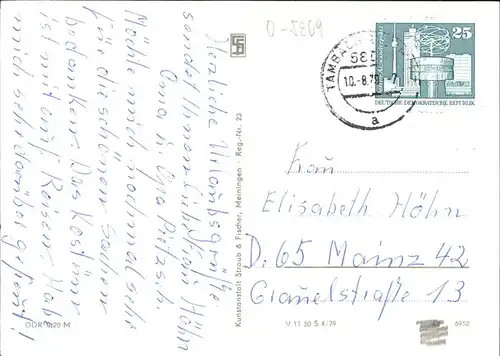 Herzliche Urlaubsgrüße
sendet Ihnen liebe Frau Höhn
Oma u. Opa
Möchte mich nochmal sehr
für die schönen Sachen
bedanken. Das Kostüm
ist mit auf Reisen. Habe
mich sehr darüber gefreut!
DDR 0,20 M
Kunstanstalt Straub & Fischer, Meiningen · Reg.-Nr. 23
O-5809
TAMBACH
10.-8.79.-7
a
25
DEUTSCHE DEMOKRATISCHE REPUBLIK
Frau
Elisabeth Höhn
D. 65 Mainz 42
Graudelstraße 13
V 11 50 S 4/79
6952